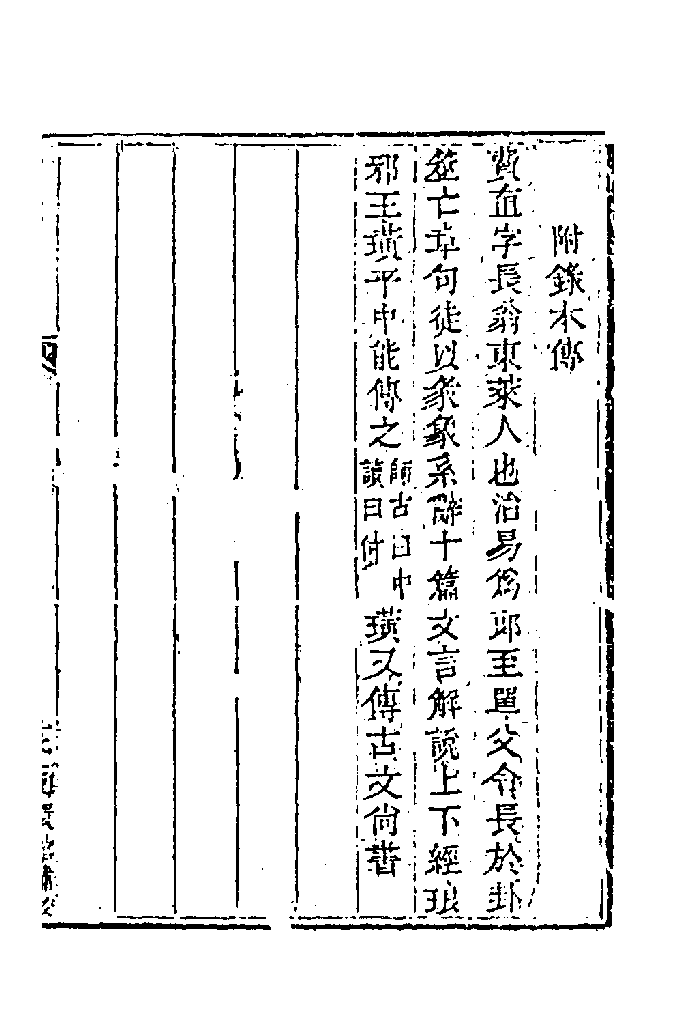 附錄本傳
費直字長翁東萊人也治易爲郎至單父令長於卦
筮亡章句徒以彖象系辭十篇文言解說上下經琅
邪王璜平中能傳之師古曰中讀曰仲璜又傳古文尙書